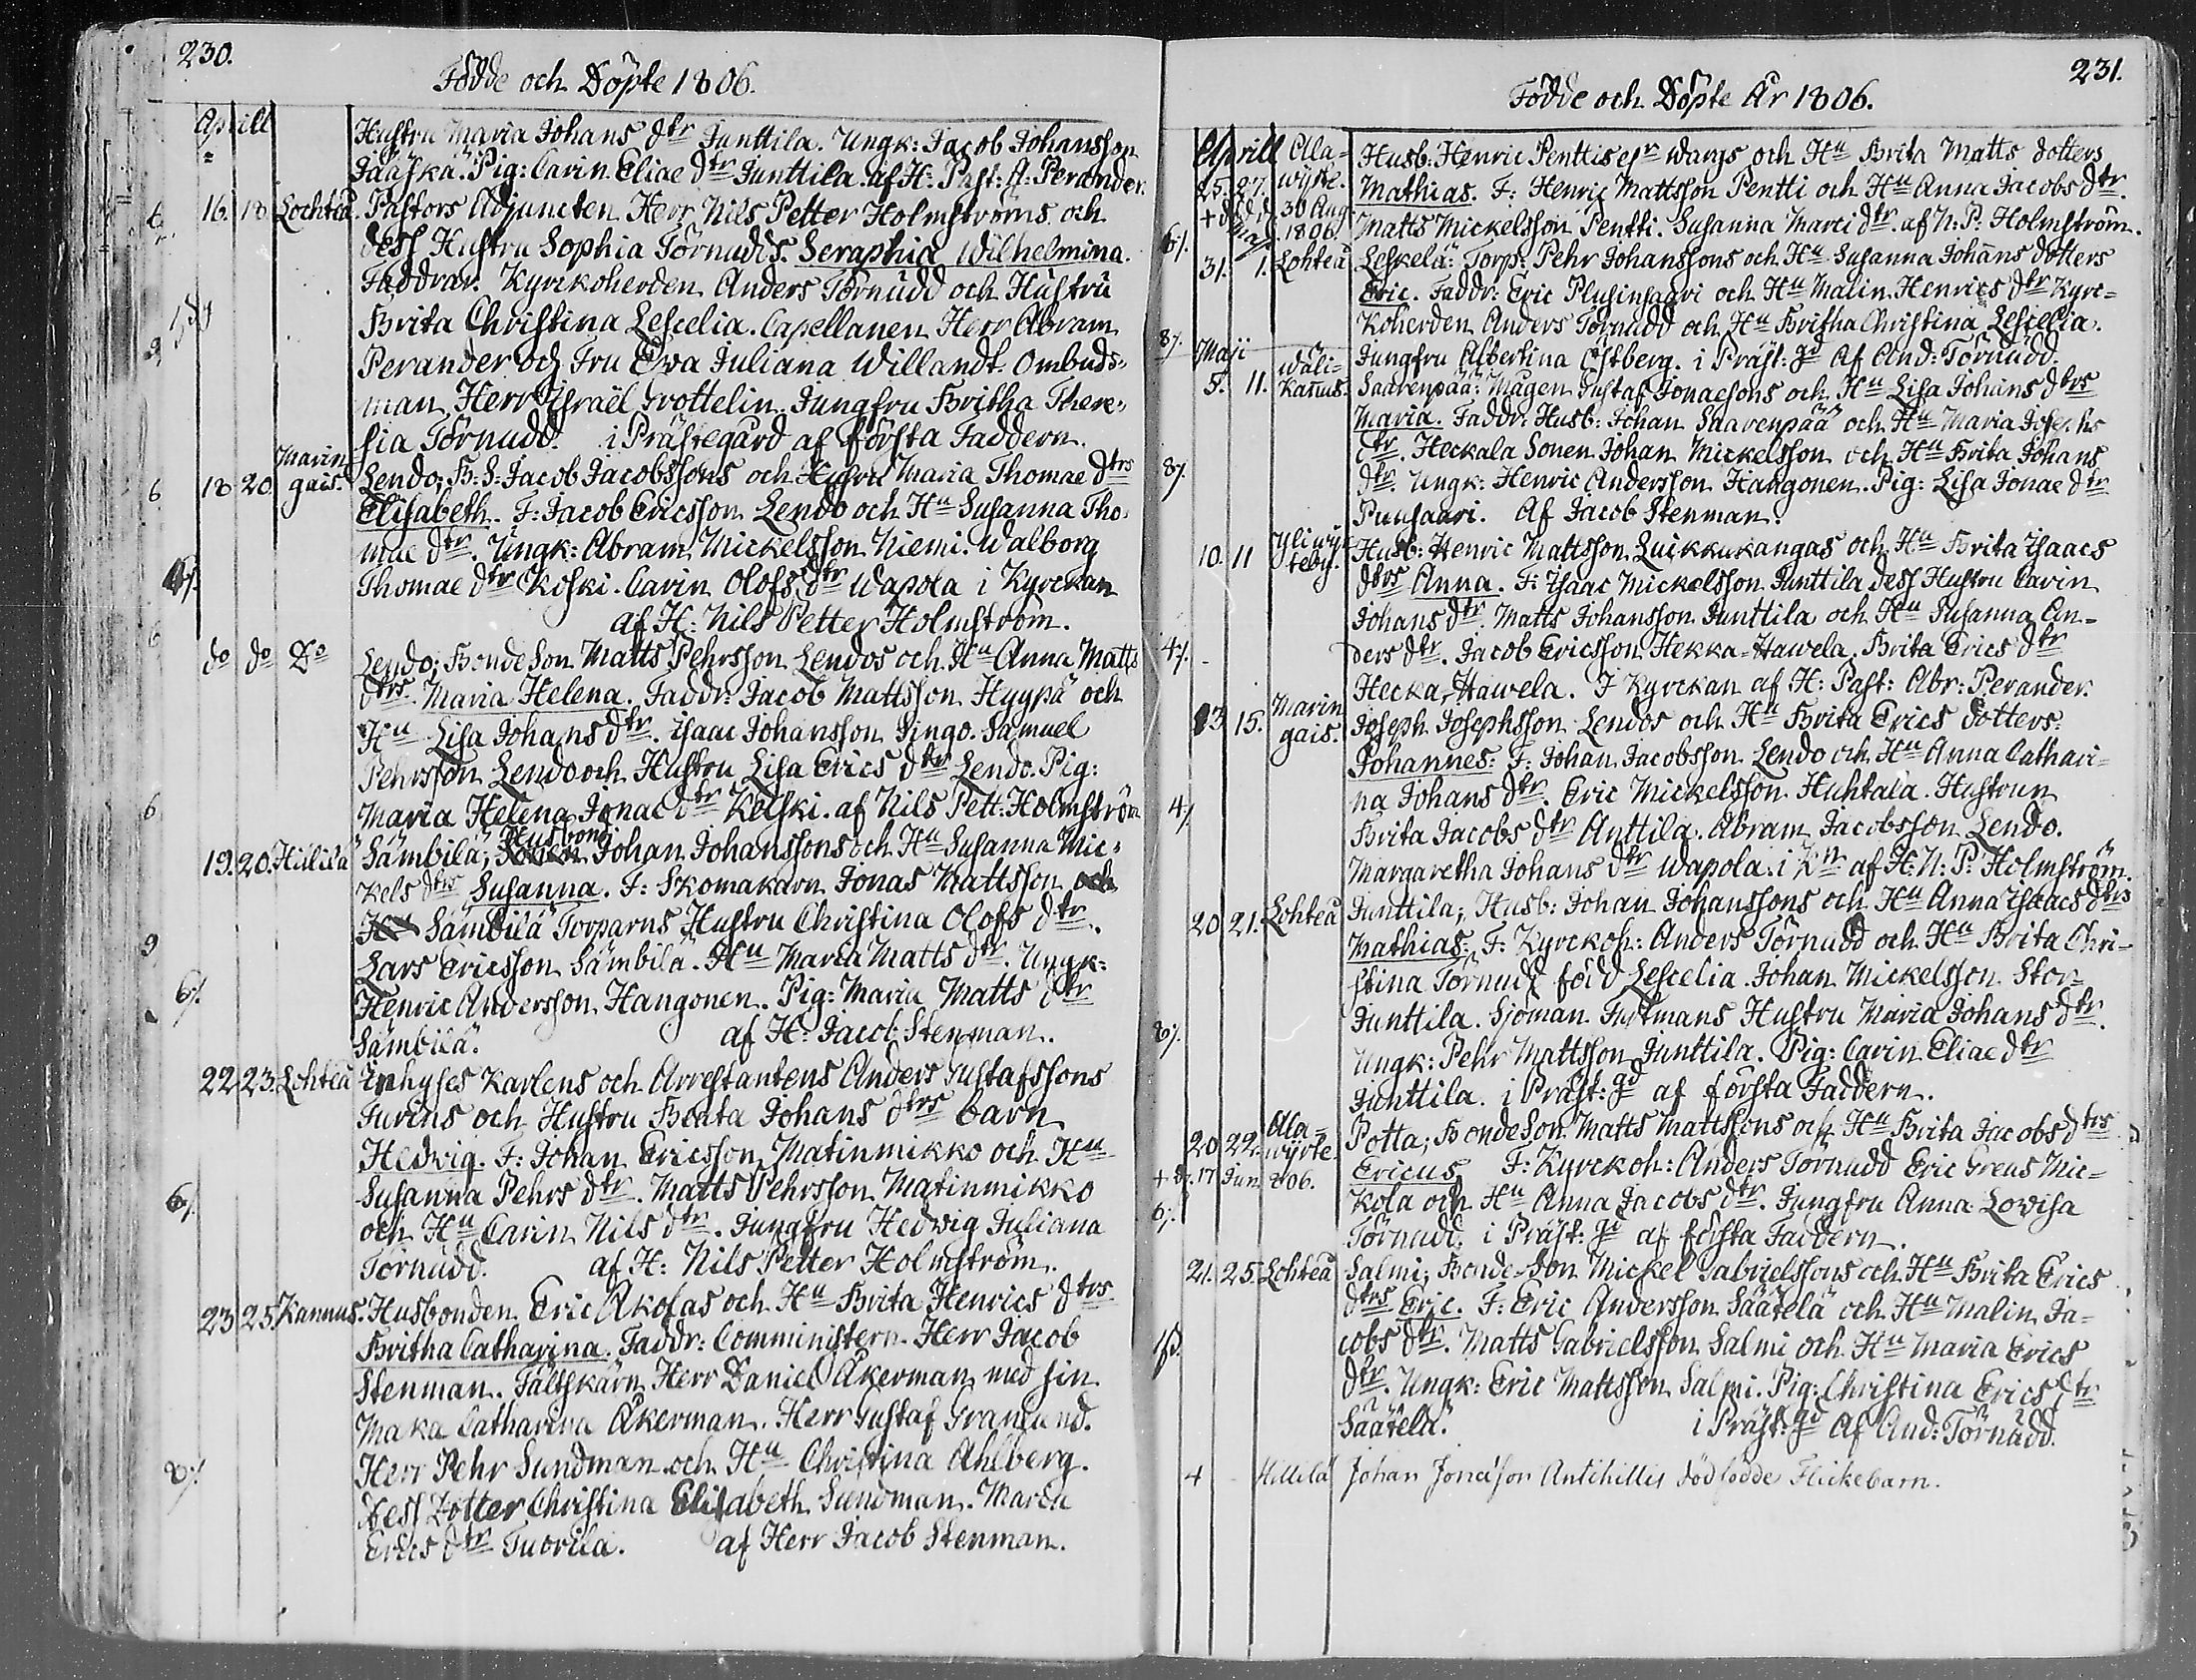 230.
Födde och Döpte 1806.
Aprill
Hustru Maria Johans dtr Junttila. Ungk: Jacob Johansson
Jääskä. Pig: Carin Eliae dtr Junttila. af H: Past: A: Perander.
16. 18 Lochteå. Pastors Adjuncten Herr Nils Petter Holmströms och
dess Hustru Sophia Törnudds. Seraphia Wilhelmina.
Faddrar. Kyrckoherden Anders Törnudd och Hustru
Brita Christina Lescelia. Capellanen Herr Abram
Perander och Fru Eva Juliana Willandt. Ombuds-
man Herr Israël Grottelin. Jungfru Britha There-
sia Törnudd. i Prästegård af första Faddern.
18 20 Marin gais. Lendo; B: S: Jacob Jacobssons och Hustru Maria Thomae dtrs
Elisabeth. F: Jacob Ericsson Lendo och Hu Susanna Tho-
mae dtr. Ungk: Abram Mickelsson Niemi. Walborg
Thomae dtr Koski. Carin Olofs dtr Wapola i Kyrckan
af H: Nils Petter Holmström.
do do Do Lendo; Bonde Son Matts Pehrsson Lendos och Hu Anna Matts
dtrs Maria Helena. Faddr: Jacob Mattsson Hyypä och
Hu Lisa Johans dtr. Isaac Johansson Pingo. Samuel
Pehrsson Lendo och Hustru Lisa Erics dtr Lendo. Pig:
Maria Helena Jonae dtr Kelski. af Nils Pett: Holmström
19. 20. Hiililä Sämbilä; Husbond: Johan Johanssons och Hu Susanna Mic-
kels dtrs Susanna. F: Skomakarn Jonas Mattsson och
Hu Sämbilä Torparns Hustru Christina Olofs dtr.
Lars Ericsson Sämbilä. Hu Maria Matts dtr. Ungk:
Henric Andersson Hangonen. Pig: Maria Matts dtr
Sämbilä. af H: Jacob Stenman.
22 23. Lohteå Inhyses Karlens och Arrestantens Anders Gustafssons
Jurins och Hustru Beata Johans dtrs barn
Hedvig. F: Johan Ericsson Matinmikko och Hu
Susanna Pehrs dtr. Matts Pehrsson Matinmikko
och Hu Carin Nils dtr. Jungfru Hedwig Juliana
Törnudd. af H: Nils Petter Holmström.
23 25. Kannus. Husbonden Eric Akolas och Hu Brita Henrics dtrs
Britha Catharina. Faddr: Comministern Herr Jacob
Stenman. Fältskärn Herr Daniel Åkerman med sin
Maka Catharina Åkerman. Herr Gustaf Granlund.
Herr Pehr Sundman och Hu Christina Ahlberg.
dess Dotter Christina Elisabeth Sundman. Maria
Erics dtr Tuorila. af Herr Jacob Stenman.
231.
Födde och Döpte År 1806.
Aprill
25. 27. Ala-wijrte. Husb: Henric Penttis el:r Wargs och Hu Brita Matts dotters
Mathias. F: Henric Mattsson Pentti och Hu Anna Jacobs dtr.
30 Aug 1806. Matts Mickelsson Pentti. Susanna Marci dtr. af N: P: Holmström.
Maji
31. 1. Lohteå Leskelä: Torp: Pehr Johanssons och Hu Susanna Johans dotters
Eric. Faddr: Eric Plusinsaari och Hu Malin Henrics dtr Kyrc-
koherden Anders Törnudd och Hu Britha Christina Lescelia.
Maji
Jungfru Albertina Östberg. i Präst: gd Af And: Törnudd.
5. 11. Wäli-Kanus. Saarenpää: Mågen Gustaf Jonaesons och Hu Lisa Johans dtrs
Maria. Faddr: Husb: Johan Saarenpää och Hu Maria Josephs
dtr. Heckala Sonen Johan Mickelsson och Hu Brita Johans
dtr. Ungk: Henric Andersson Hangonen. Pig: Lisa Jonae dtr
Punsaari. Af Jacob Stenman.
10. 11 Yliwij teby. Husb: Henric Mattsson Luikkukangas och Hu Brita Isaacs
dtrs Anna. F: Isaac Mickelsson Junttila dess Hustru Carin
Johans dtr. Matts Johansson Junttila och Hu Susanna An-
ders dtr. Jacob Ericsson Hekka-Hawela. Brita Erics dtr
Hecka-Hawela. I Kyrckan af H: Past: Abr: Perander.
13 15. Marin gais. Joseph Josephsson Lendos och Hu Brita Erics dotters.
Johannes: F: Johan Jacobsson Lendo och Hu Anna Cathari-
na Johans dtr. Eric Mickelsson Huhtala. Hustrun
Brita Jacobs dtr Anttila. Abram Jacobsson Lendo.
Margaretha Johans dtr Wapola. i Kn af H: N: P: Holmström.
20 21. Lohteå Junttila; Husb: Johan Johanssons och Hu Anna Isaacs dtrs
Mathias: F: Kyrckoh: Anders Törnudd och Hu Brita Chri-
stina Törnudd född Lescelia. Johan Mickelsson Stor-
Junttila. Sjöman Furtmans Hustru Maria Johans dtr.
Ungk: Pehr Mattsson Junttila. Pig: Carin Eliae dtr
Junttila. i Präst: gd af första Faddern.
20 22. Ala-wijrte Potta; Bonde Son Matts Mattssons och Hu Brita Jacobs dtrs
+ d. 17 Jun 806. Ericus F: Kyrckoh: Anders Törnudd Eric Greus Mic-
kola och Hu Anna Jacobs dtr. Jungfru Anna Lovisa
Törnudd. i Präst: gd af första Faddern.
21. 25. Lohteå Salmi; Bonde-Son Mickel Gabrielssons och Hu Brita Erics
dtrs Eric. F: Eric Andersson Säätelä och Hu Malin Ja-
cobs dtr. Matts Gabrielsson Salmi och Hu Maria Erics
dtr. Ungk: Eric Mattsson Salmi. Pig: Christina Erics dtr
Säätelä. i Präst: gd Af And: Törnudd.
4 Hillilä Johan Jonæson Antihillis dödfödde Flickebarn.